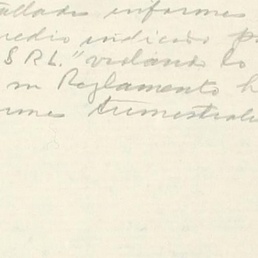 tallados informes
medio indicado p
S R L." violando lo
su Reglamento h
rmes trimestrale